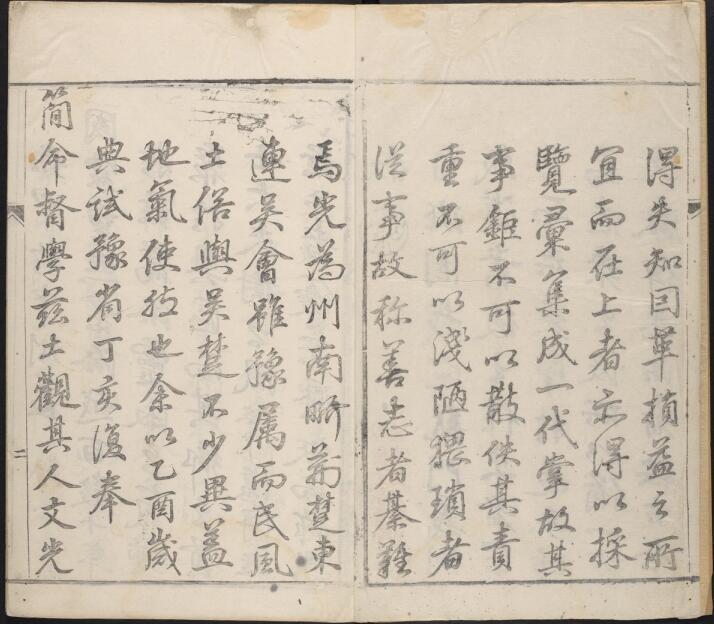 得失知因革損益之所
宜而在上者亦得以採
覽彙集成一代掌故其
事鉅不可以散佚其責
重不可以淺陋猥瑣者
從事故称善志者綦難
焉光為州南畍荊楚東
連吳會雖豫属而民風
土俗與吳楚不少異蓋
地氣使然也余以乙酉歲
典試豫省丁亥復奉
簡命督學茲土觀其人文光
二